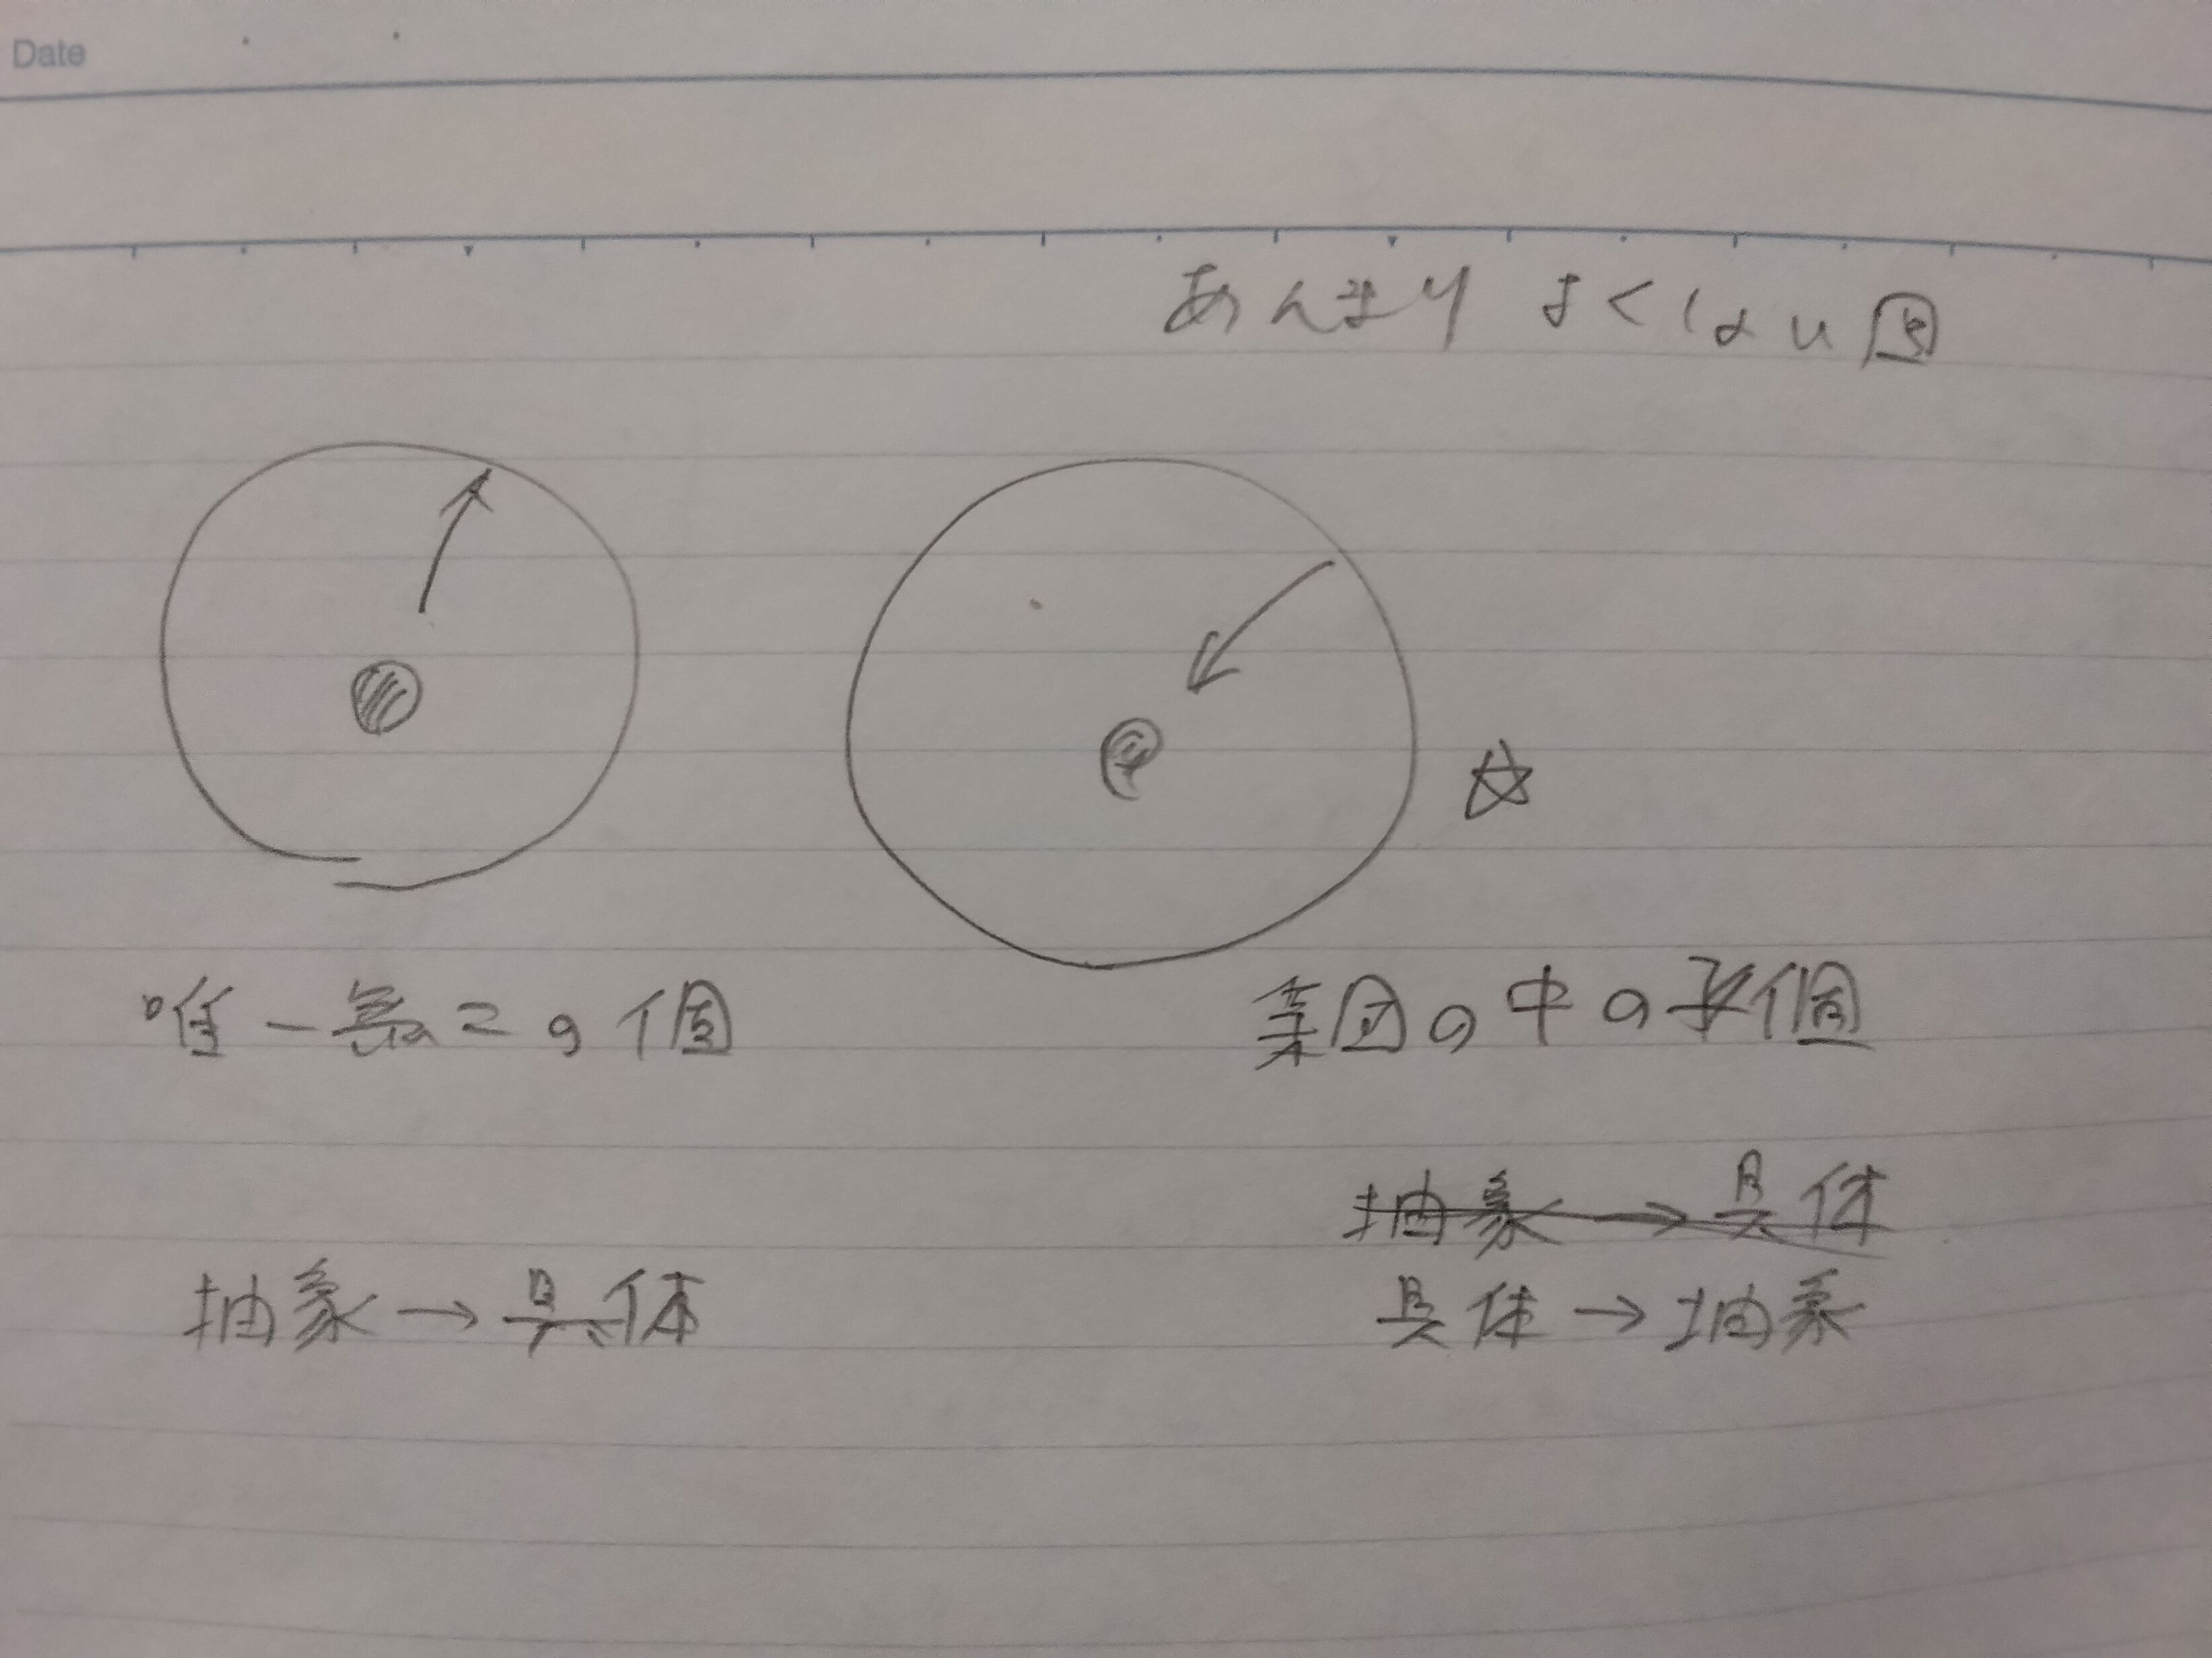 Date
あんまりよくない図
唯一無二の個
集団の中の個
抽象→具体
具体→抽象
抽象→具体